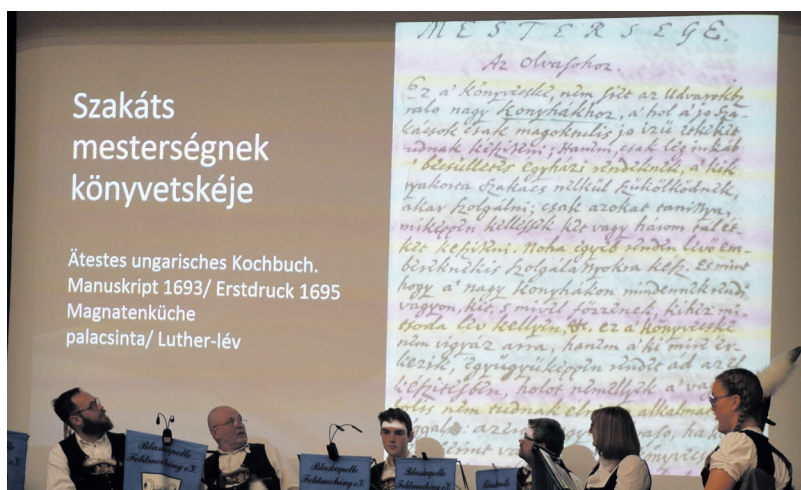 Szakáts
mesterségnek
könyvetskéje
Ätestes ungarisches Kochbuch.
Manuskript 1693/ Erstdruck 1695
Magnatenküche
palacsinta/ Luther-lév
MESTERSEGE.
Az olvasohoz.
Ez a' könyvecske, nem siet az Udvarokb
ralo nagy Konyhákhoz, a' hol a' jo Sza-
kácsok csak magoktulis jo izü étkeket
tudnak késziteni; Hanem, csak leg inkáb
a' böcsülletes egyházi rendeknek, a' kik
gyakorta szakács nélkül szükölködnek,
akar szolgálni; csak azokat tanittya,
miképpen kellessék két vagy három tál ét-
ket késziteni. Noha egyéb rendin lévö em-
bereknekis
hogy a' nagy konyhákon mindennek
vagyon, kic, s mivel fözzenek, kihez mi-
tsoda lév kellyen, &c. ez a' könyvecske
nem vigyáz arra, hanem a' ki mire ér-
kezik, együgyüképpen rendet ád
készitésben, holot némellyek a'
nem tudnak
Blaskapelle
Feldmoching e.V.
Blaskapelle
Feldmoching e.V.
Blaskapelle
Feldmoching e.V.
Blaskapelle